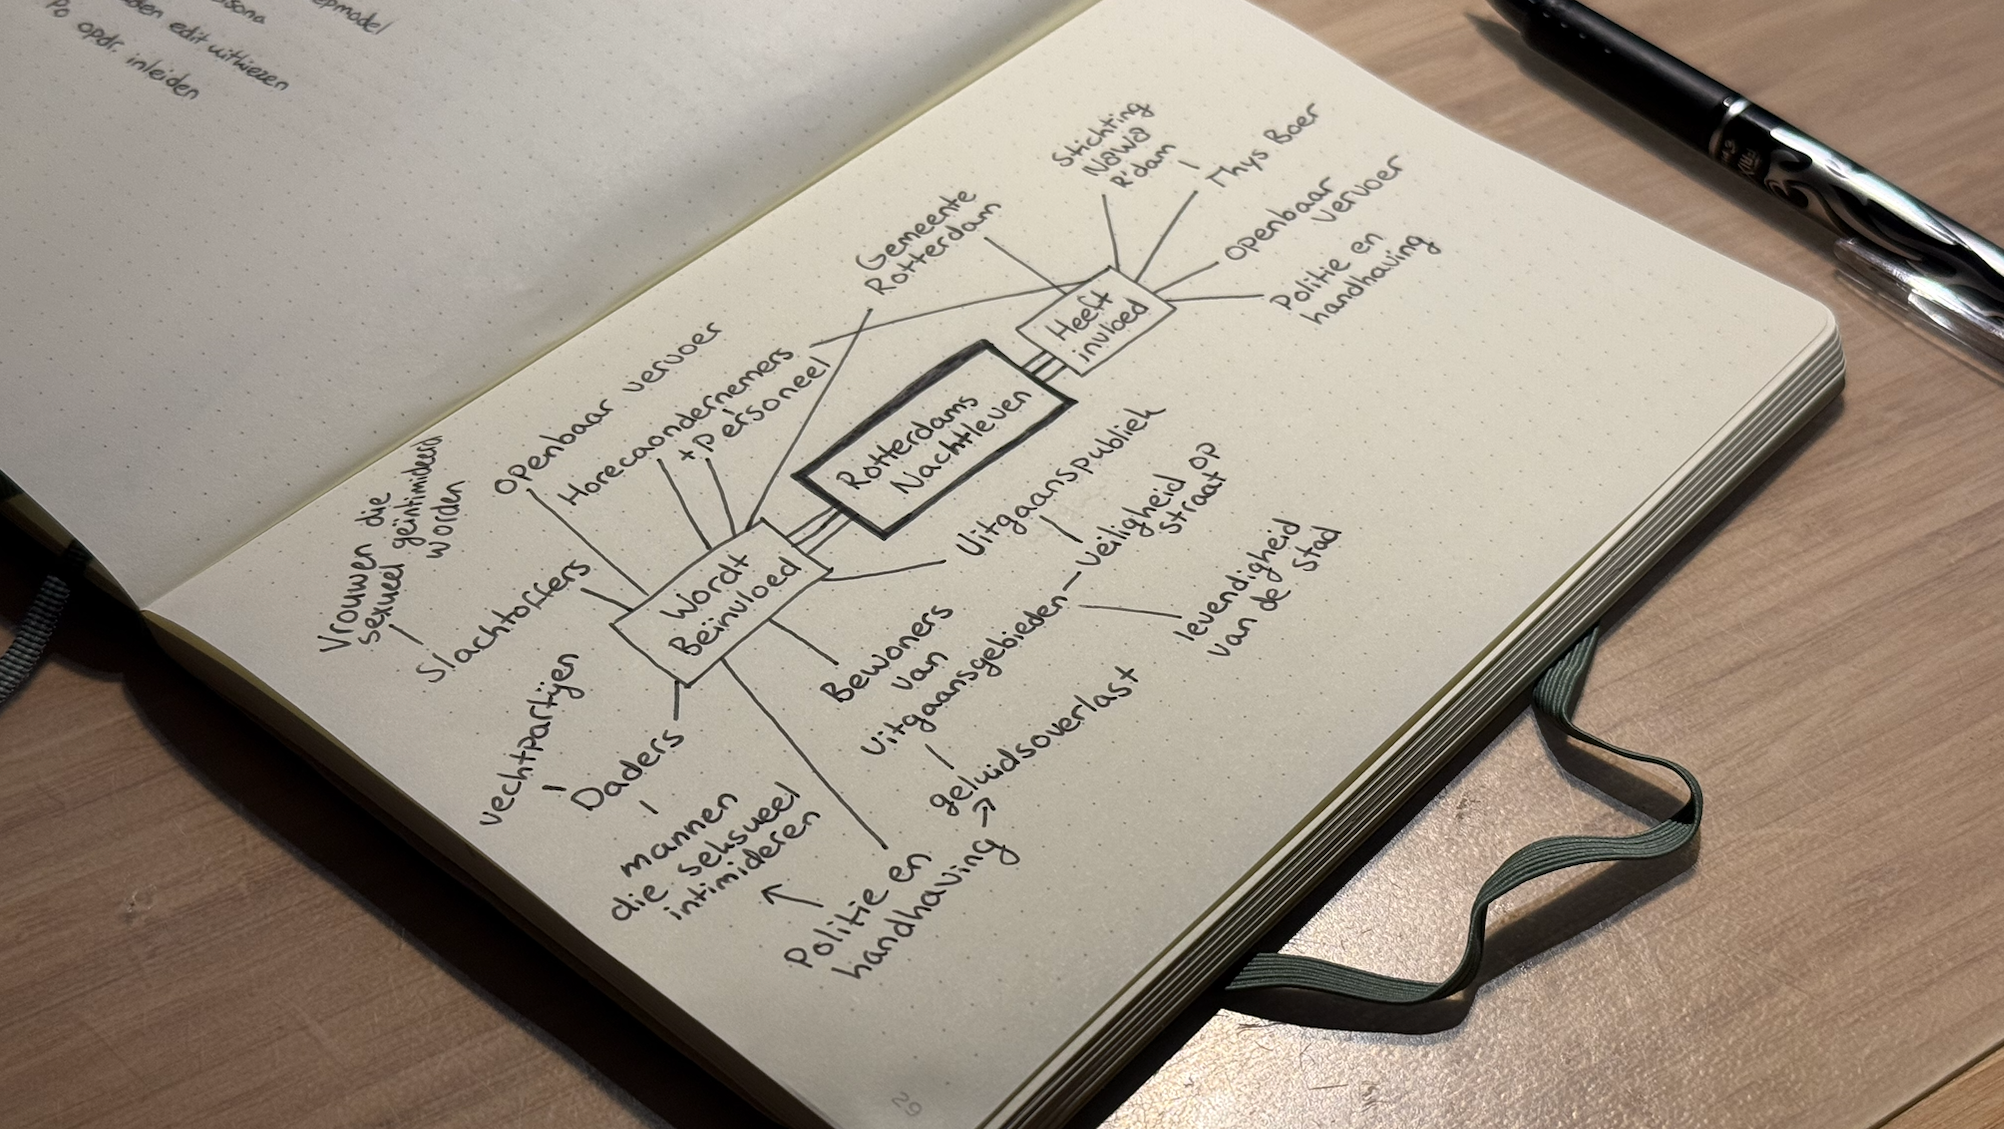 edit uitkiezen
opdr. inleiden
Stichting
N8W8
R'dam
Thys Boer
Openbaar
Vervoer
Politie en
handhaving
Gemeente
Rotterdam
Heeft
invloed
Openbaar vervoer
Horecaondernemers
+ personeel
Rotterdams
Nachtleven
Vrouwen die
sexueel geïntimideerd
worden
Slachtoffers
Wordt
Beïnvloed
Uitgaanspubliek
Veiligheid op
straat
levendigheid
van de stad
Bewoners
van
uitgaansgebieden
geluidsoverlast
vechtpartijen
Daders
mannen
die seksueel
intimideren
Politie en
handhaving
29